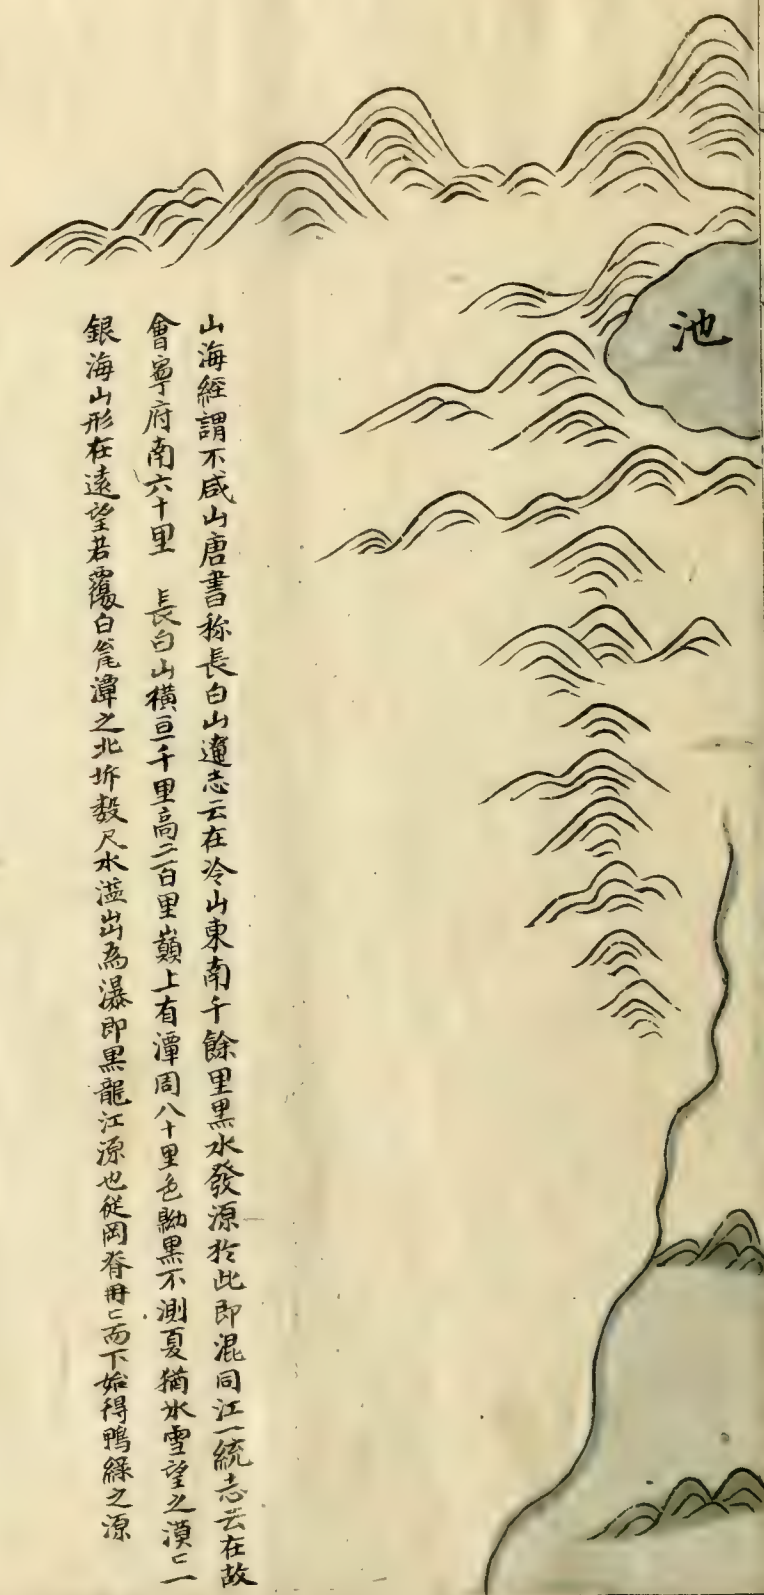 池
山海經謂不咸山唐書称長白山遼志云在冷山東南千餘里黑水發源於此即混同江一統志云在故
會寧府南六十里　長白山横亘千里高二百里巔上有潭周八十里色黝黑不測夏猶氷雪望之漠〻一
銀海山形在遠望若覆白瓮潭之北坼數尺水溢出為瀑即黑龍江源也從岡脊冉〻而下始得鴨綠之源